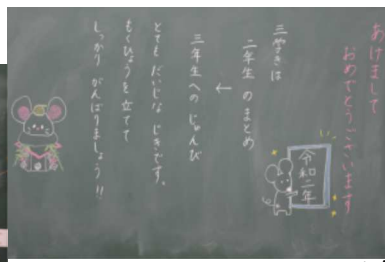 あけまして
おめでとうございます
令和二年
三学きは
二年生のまとめ
↓
三年生への じゅんび
とても だいじな じきです。
もくひょうを 立てて
しっかり がんばりましょう!!